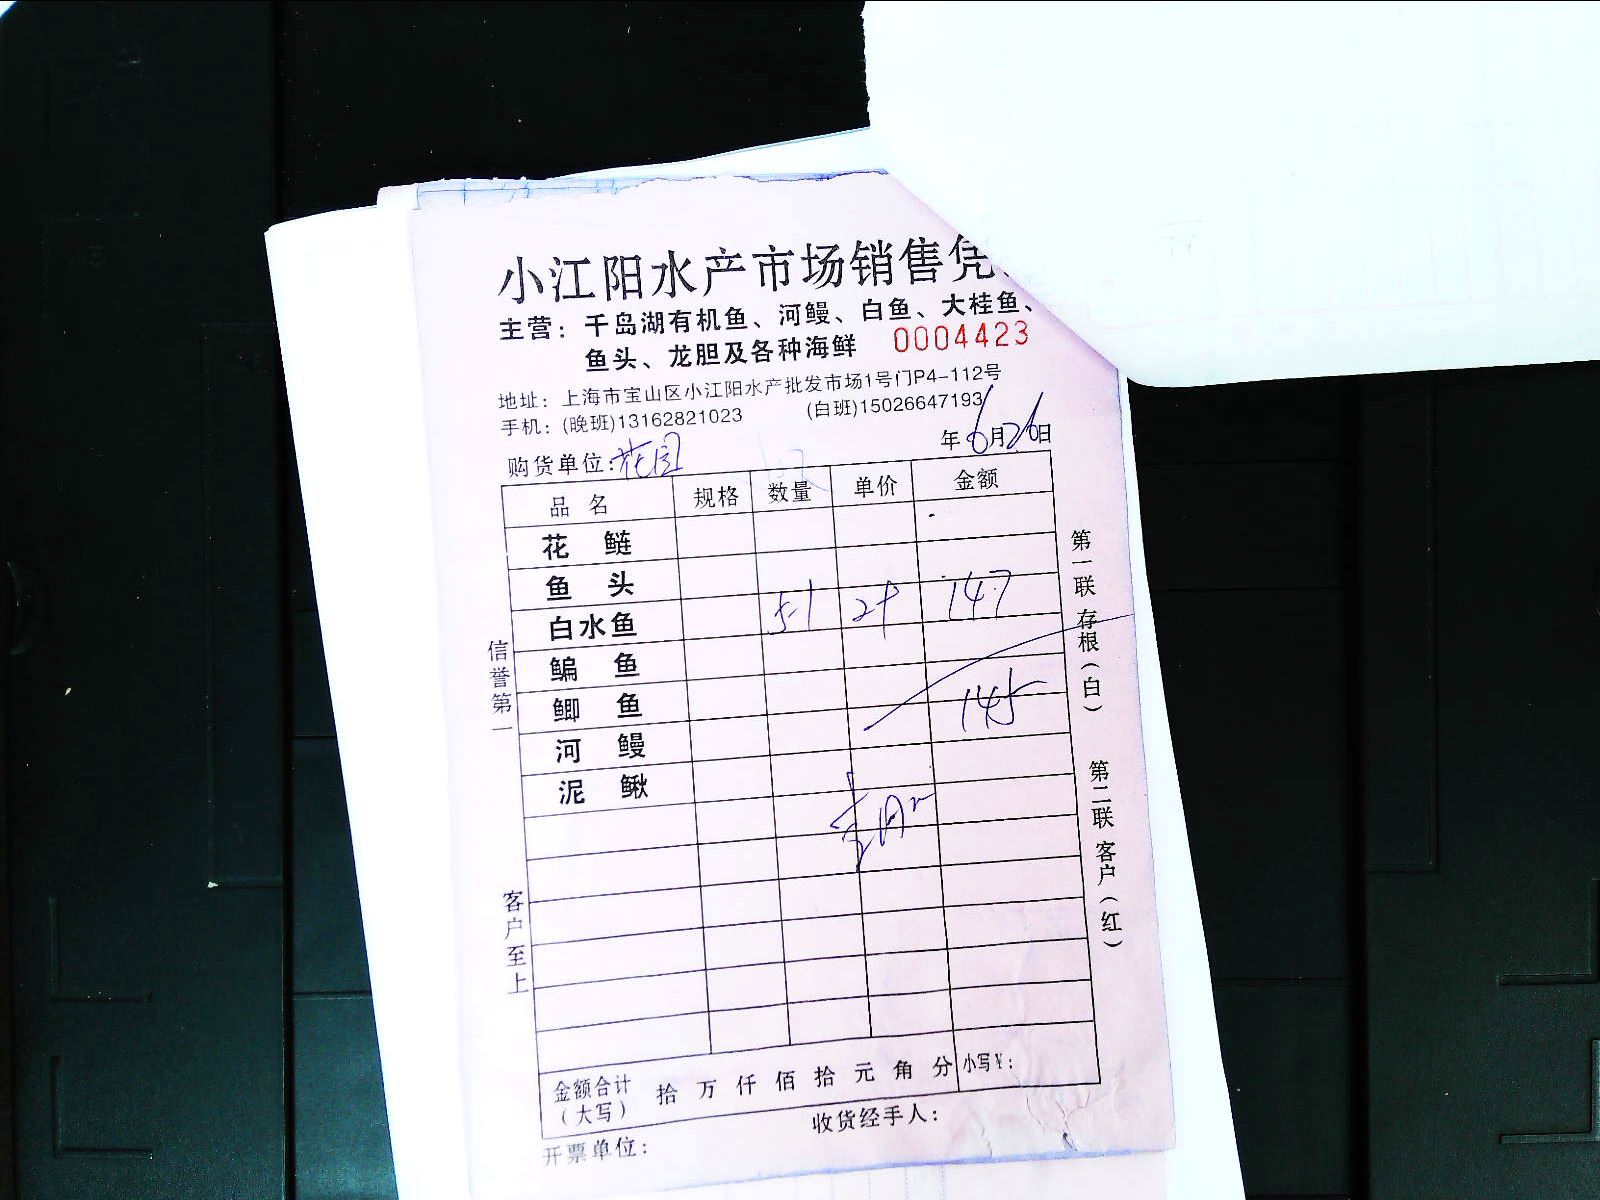 小江阳水产市场销售凭
主营：千岛湖有机鱼、河鳗、白鱼、大桂鱼、
鱼头、龙胆及各种海鲜 0004423
地址：上海市宝山区小江阳水产批发市场1号门P4-112号
手机：(晚班)13162821023 (白班)15026647193
年6月26日
购货单位：花园
品名 规格 数量 单价 金额
花鲢
鱼头
白水鱼 147
鳊鱼
鲫鱼 145
河鳗
泥鳅
金额合计（大写） 拾万仟佰拾元角分 小写¥：
开票单位： 收货经手人：
信誉第一
客户至上
第一联存根（白）
第二联客户（红）